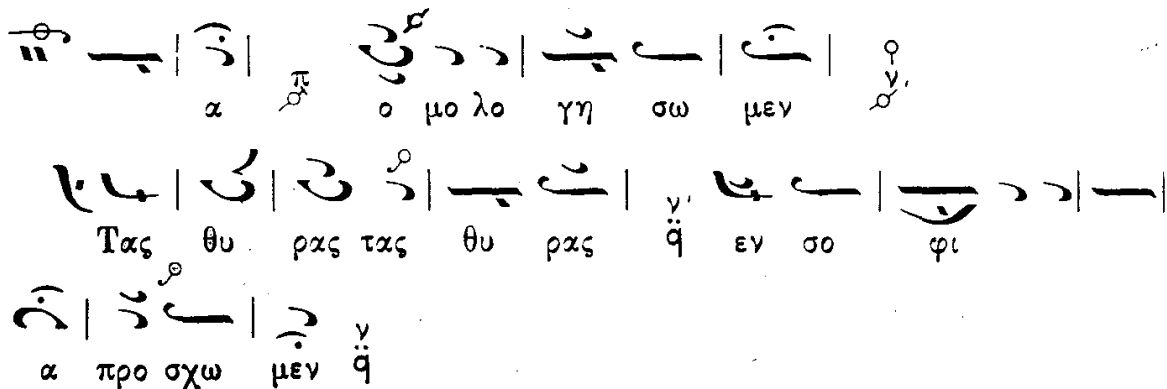 α π ο μο λο γη σω μεν ν
Τας θυ ρας τας θυ ρας ν q εν σο φι
α προ σχω μεν ν q